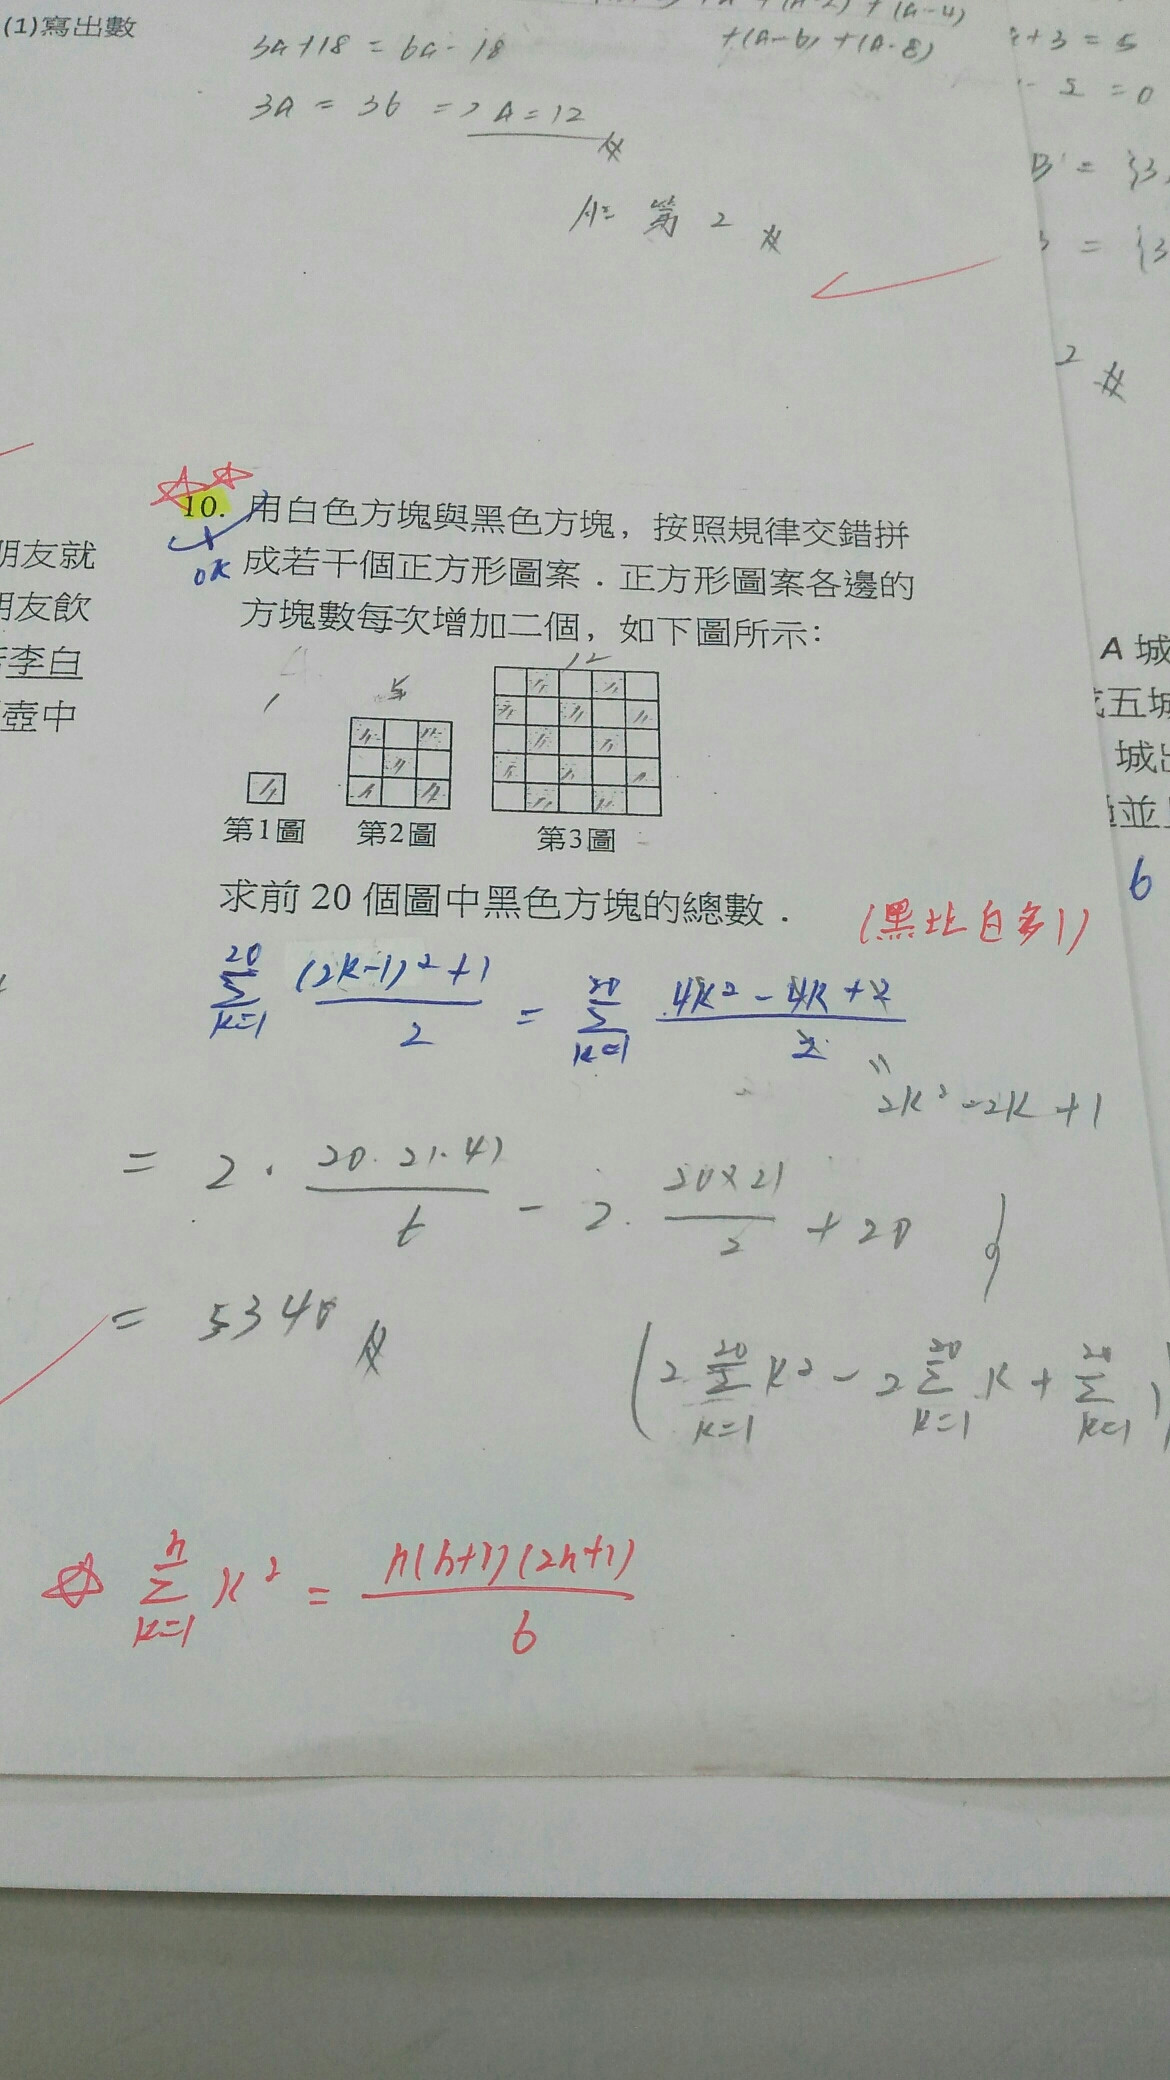 (1)寫出數
3A+18 = 6A-18
+(A-6)+(A-8)
+3 = 5
3A = 36 => A=12
5 = 0
A= 第 2
B = {3,
= {3
2
10. 用白色方塊與黑色方塊，按照規律交錯拼
OK 成若干個正方形圖案．正方形圖案各邊的
方塊數每次增加二個，如下圖所示：
朋友就
朋友飲
李白
壺中
A 城
五城
城出
並
6
1 5 12
第1圖 第2圖 第3圖
求前 20 個圖中黑色方塊的總數．
(黑比白多1)
\sum_{k=1}^{20} \frac{(2k-1)^2+1}{2} = \sum_{k=1}^{20} \frac{4k^2-4k+2}{2}
2k²-2k+1
= 2·\frac{20·21·41}{6} - 2·\frac{20×21}{2} + 20
= 5340
(2\sum_{k=1}^{20} k²-2\sum_{k=1}^{20} k+\sum_{k=1}^{20} 1)
\sum_{k=1}^{n} k² = \frac{n(n+1)(2n+1)}{6}